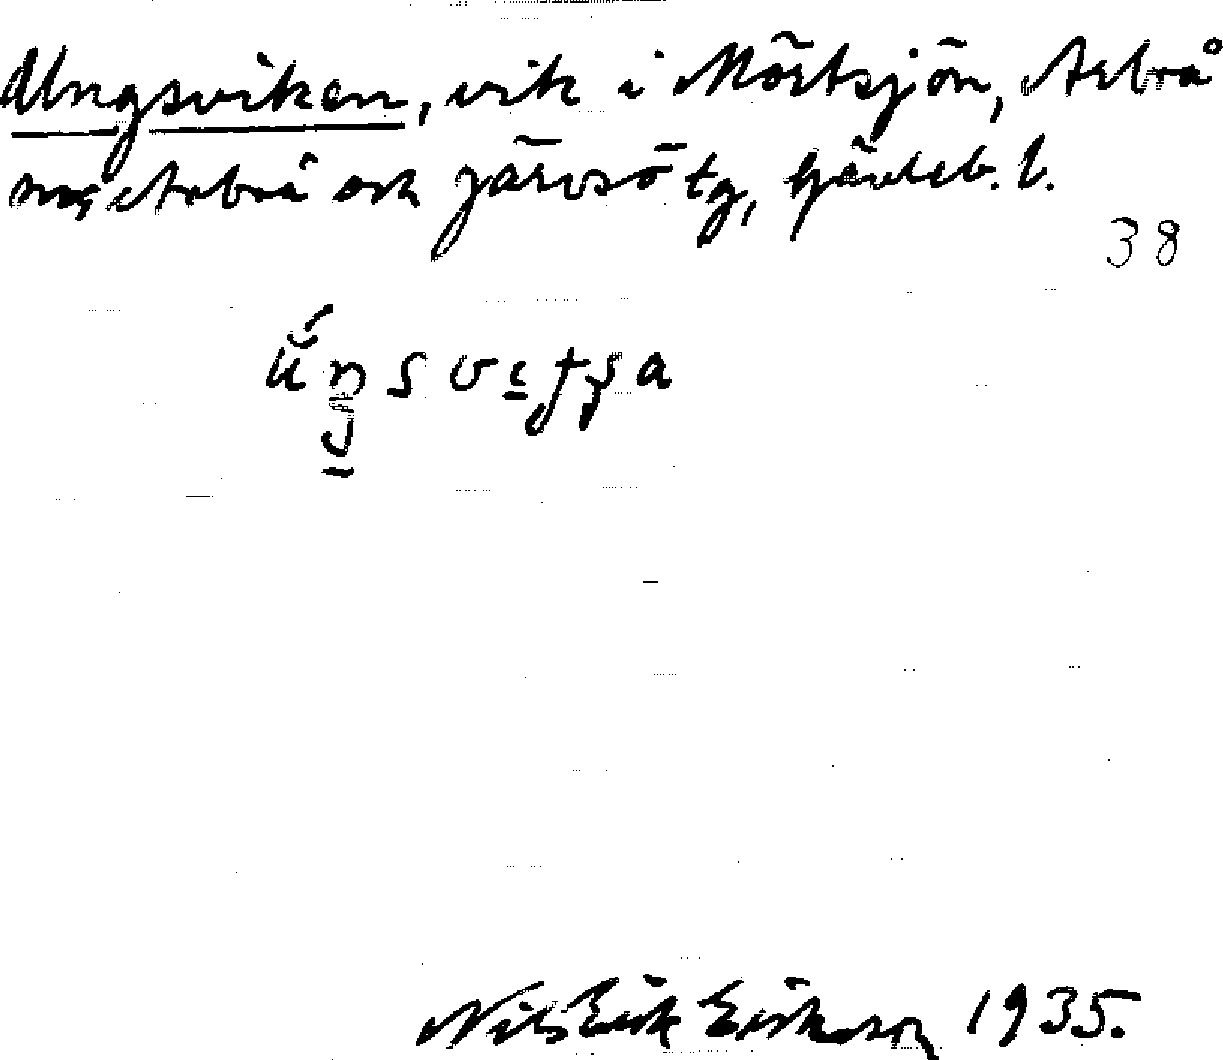 Ungsviken, vik i Mörtsjön, Arbrå
sn, Arbrå och Järvsö tg, Gävleb. l.
38
Nils Erik Eriksson 1935.